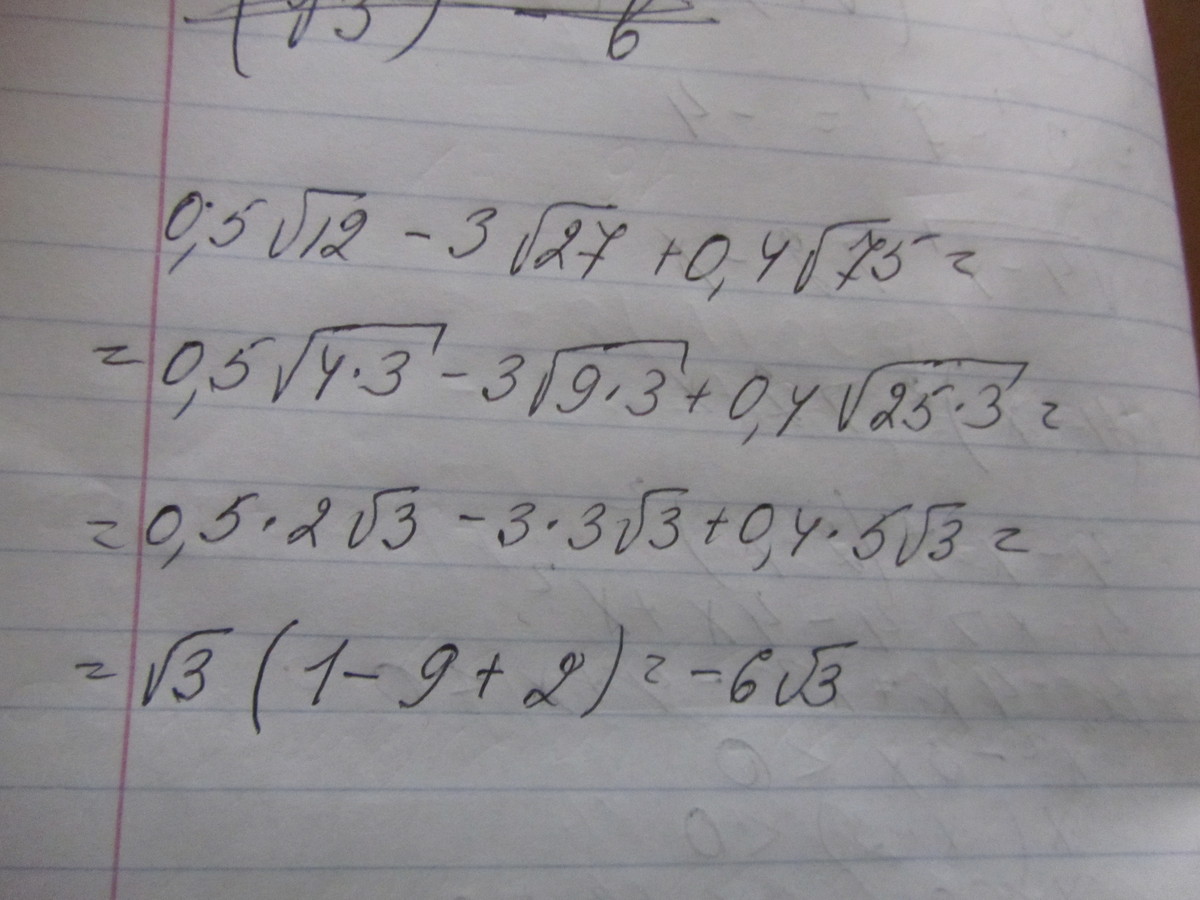 (√3) - 6
0,5√12 - 3√27 + 0,4√75 =
= 0,5√4·3 - 3√9·3 + 0,4√25·3 =
= 0,5·2√3 - 3·3√3 + 0,4·5√3 =
= √3 (1 - 9 + 2) = -6√3